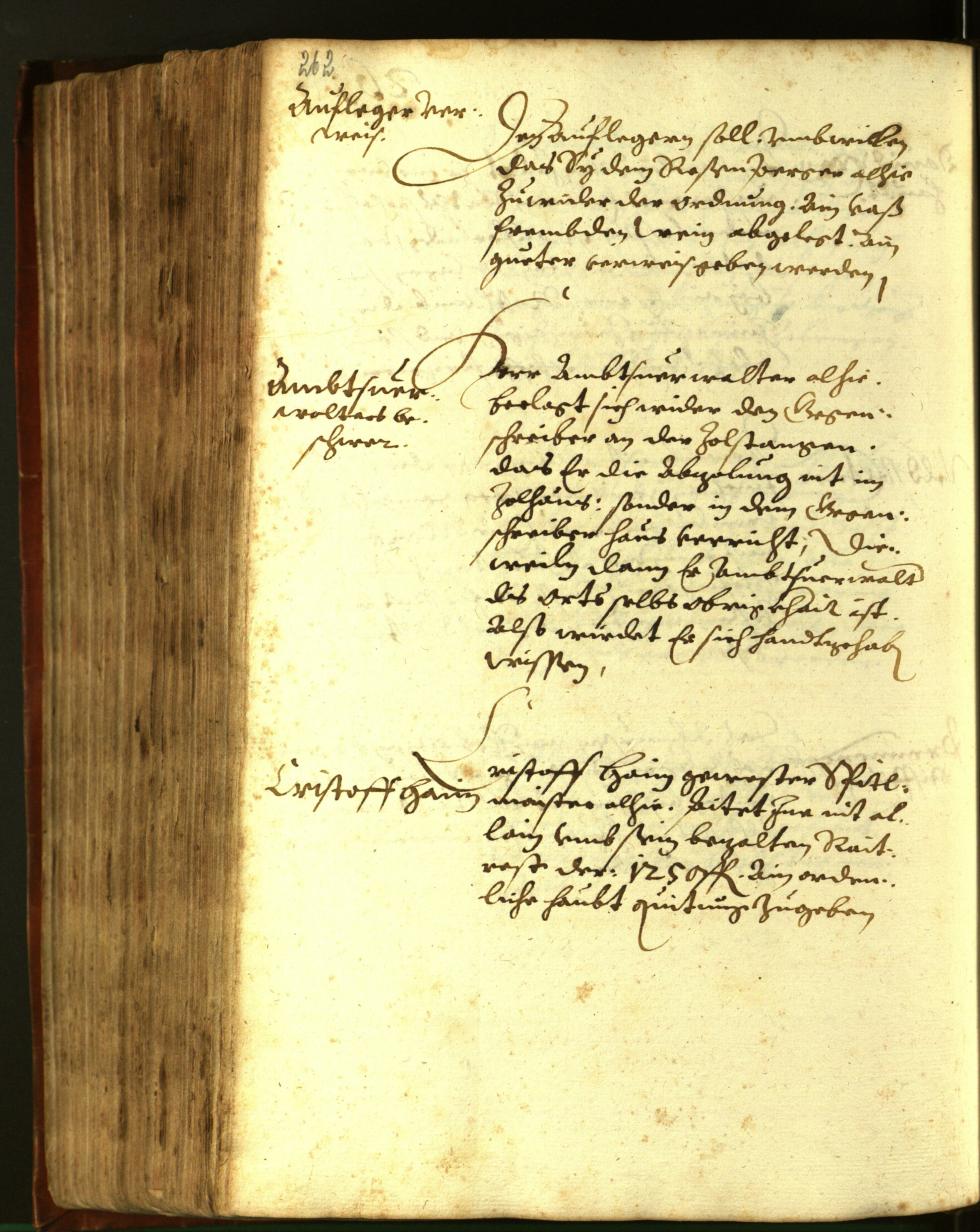 262
Aufleger ver:
weis.
Den Auflegern soll. vmbwillen
das Sy dem Rosenperger alhie
zuwider der ordnung. Ain vaß
frembden wein abgelegt. Ain
gueter verweis geben werden,
Ambtsuer:
walters be:
schwer.
Herr Ambtsuerwalter alhie.
beclagt sich wider den Gegen:
schreiber an der Zolstangen.
das Er die Abzolung nit im
Zolhaus: sonder in dem Gegen:
schreiber haus verricht, Die:
weiln dann Er Ambtsuerwalt
des orts selbs obrigkhait ist.
Also würdet Er sich handtzehaben
wissen,
Cristoff Haim
Cristoff Haim gewester Spitl:
maister alhie. Pitet Ime nit al:
lain vmb sein bezalten Rait:
rest der: 1250 fl. Ain orden:
liche haubt quitung zugeben